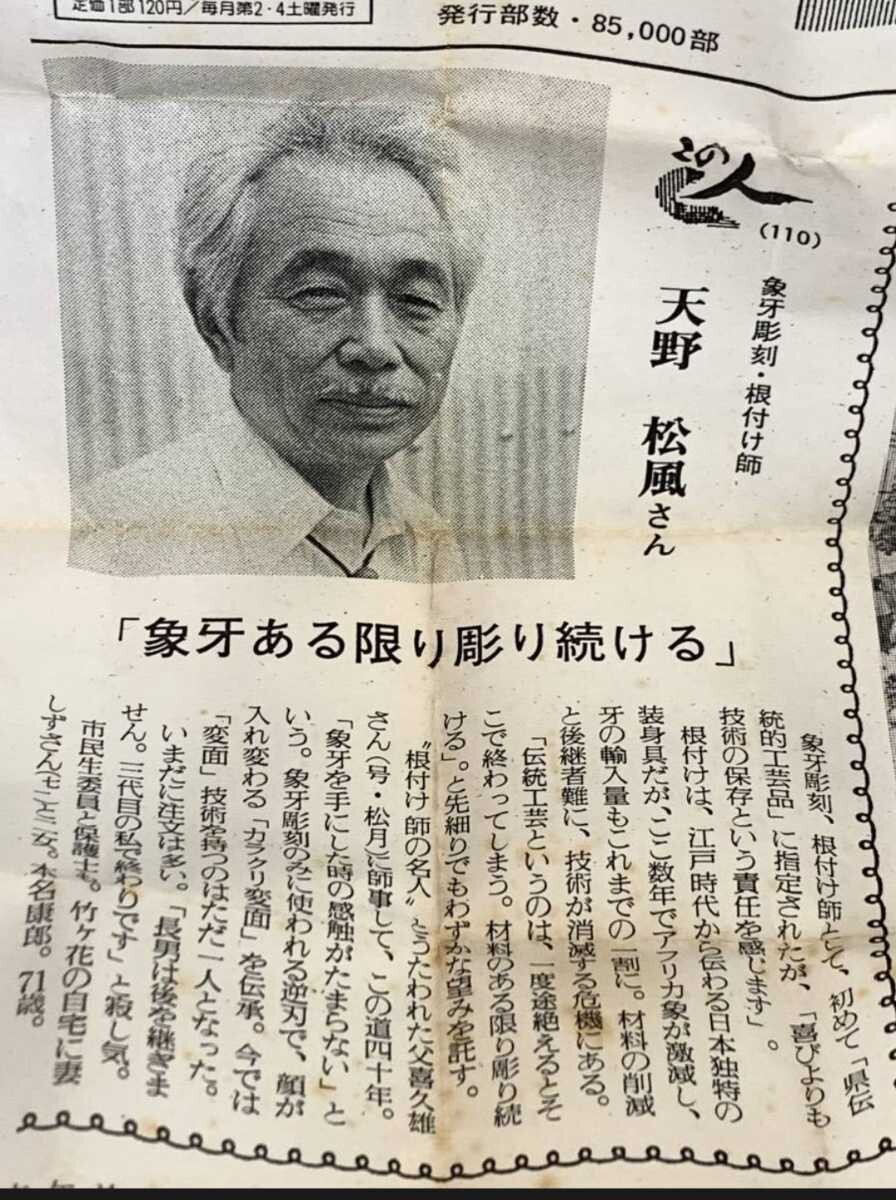 定価1部120円／毎月第2・4土曜発行
発行部数・85,000部
この人
(110)
象牙彫刻・根付け師
天野 松風さん
「象牙ある限り彫り続ける」
象牙彫刻、根付け師として、初めて「県伝
統的工芸品」に指定されたが、「喜びよりも
技術の保存という責任を感じます」。
根付けは、江戸時代から伝わる日本独特の
装身具だが、ここ数年でアフリカ象が激減し、
牙の輸入量もこれまでの一割に。材料の削減
と後継者難に、技術が消滅する危機にある。
「伝統工芸というのは、一度途絶えるとそ
こで終わってしまう。材料のある限り彫り続
ける」。と先細りでもわずかな望みを託す。
〝根付け師の名人〟とうたわれた父喜久雄
さん（号・松月）に師事して、この道四十年。
「象牙を手にした時の感触がたまらない」と
いう。象牙彫刻のみに使われる逆刃で、顔が
入れ変わる「カラクリ変面」を伝承。今では
「変面」技術を持つのはただ一人となった。
いまだに注文は多い。「長男は後を継ぎま
せん。三代目の私で終わりです」と寂し気。
市民生委員と保護士。竹ヶ花の自宅に妻
しずさん（七一）と二人。本名康郎。71歳。